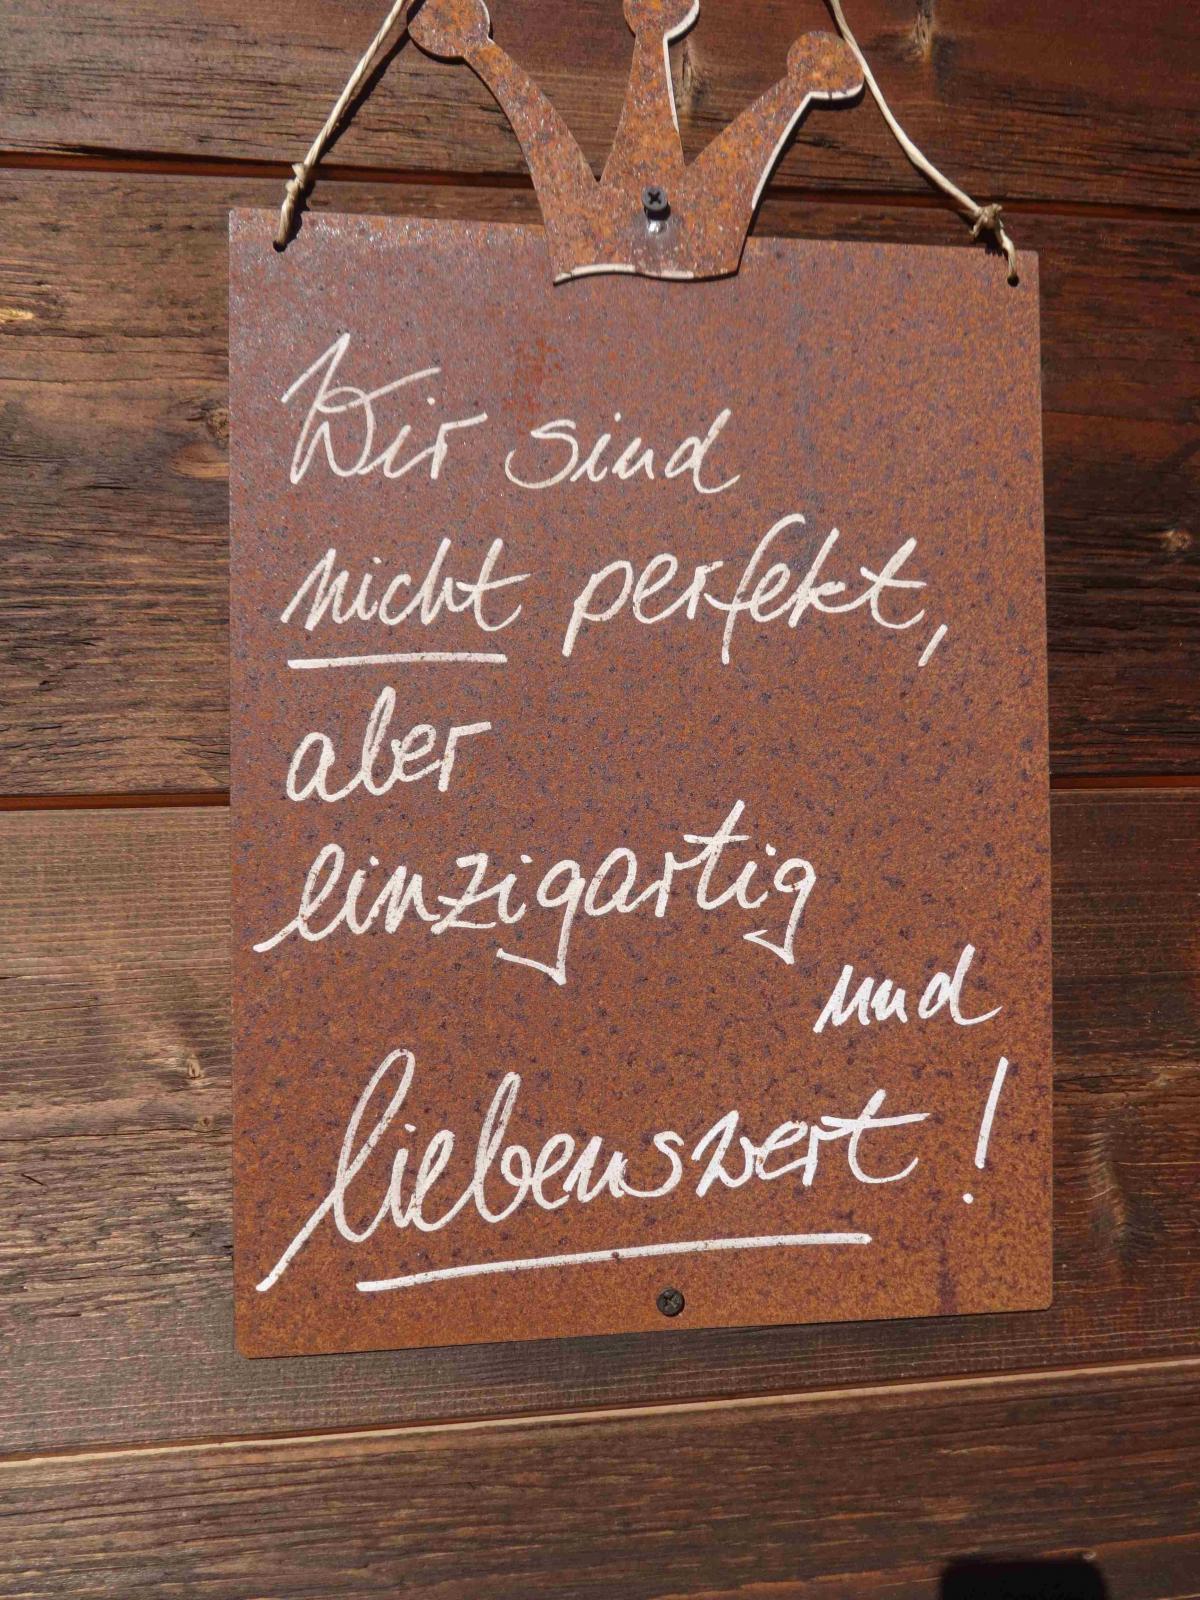 Wir sind
nicht perfekt,
aber
einzigartig
und
liebenswert!